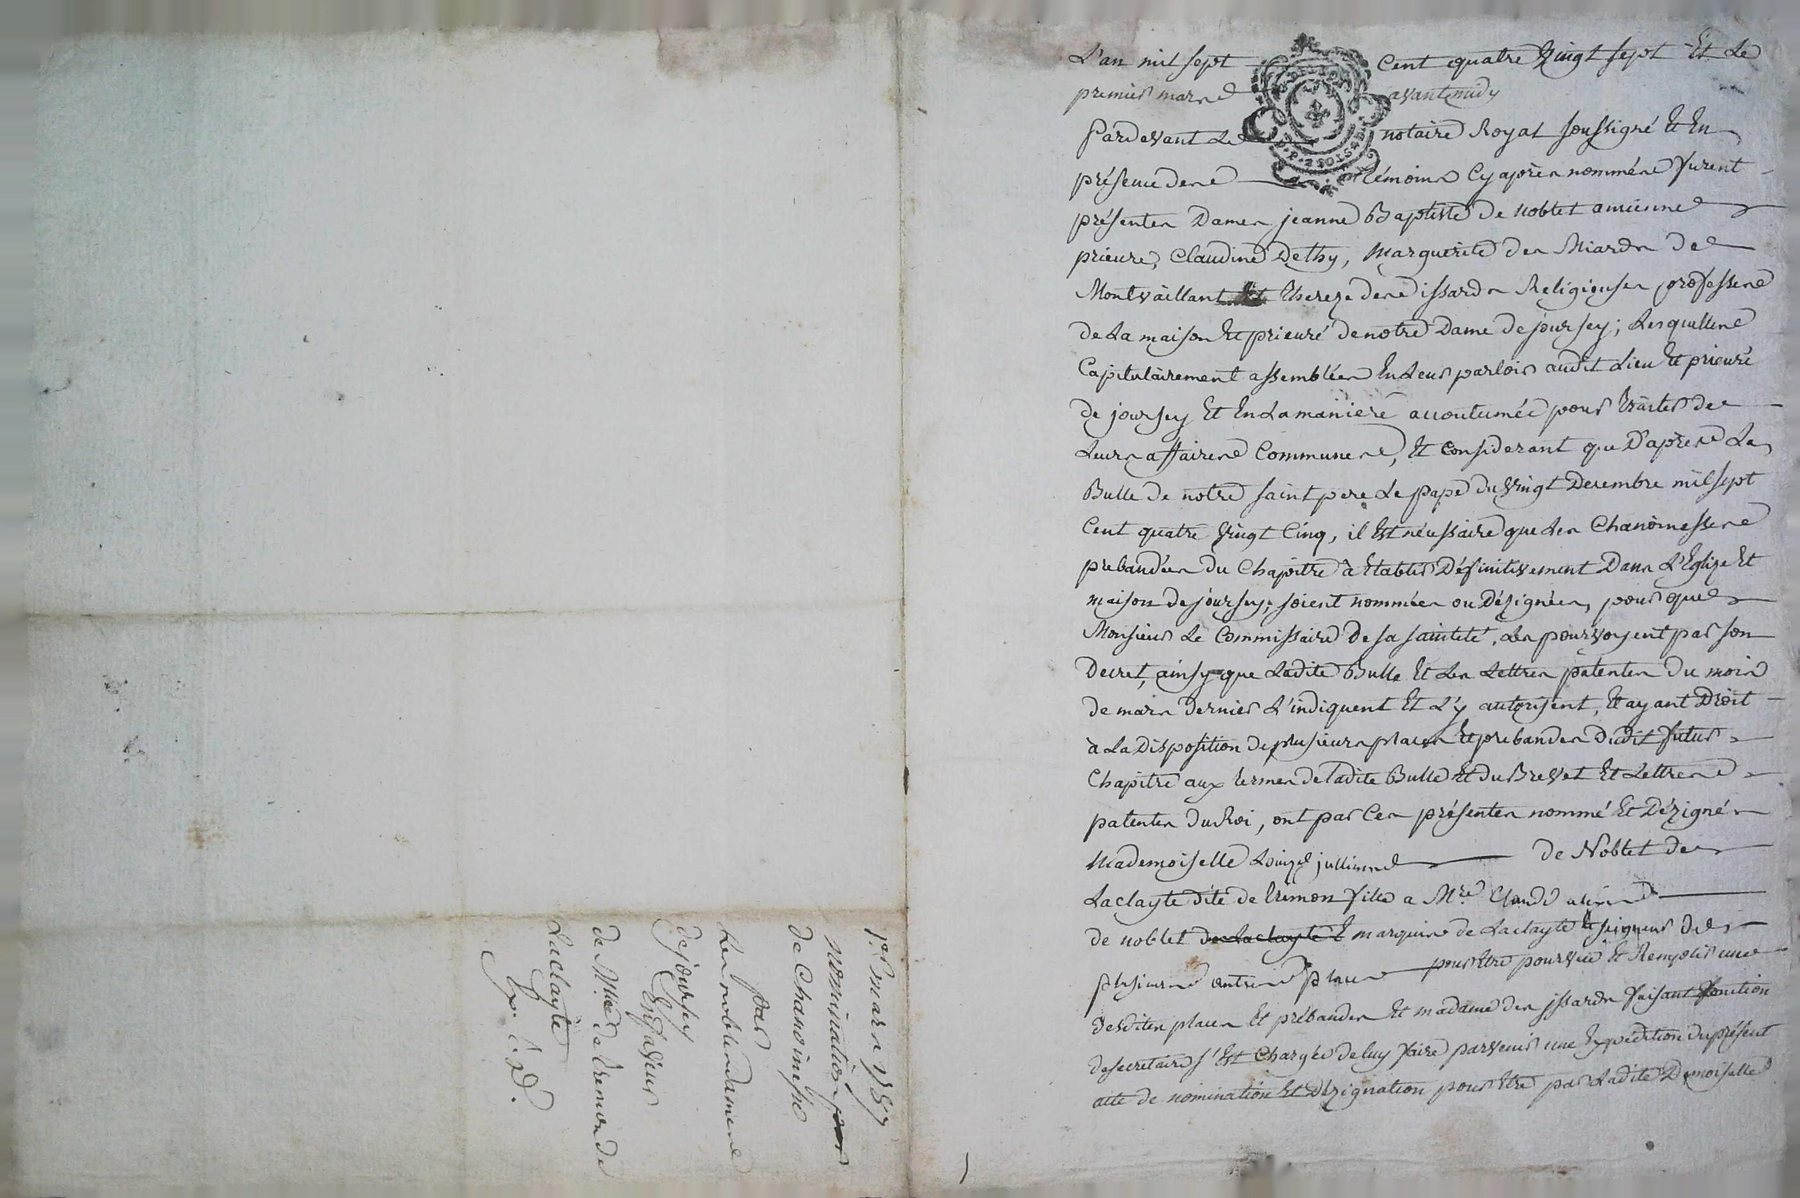 L'an mil sept Cent quatre Vingt sept Et Le
premier mars avant midy
Pardevant Le notaire Royal soussigné Et En
présence des témoins Cy après nommés furent
présentes Dames jeanne Baptiste de Noblet ancienne
prieure, Claudine Dethy, Marguerite des Miards de
Montvaillant Et thereze des issards Religieuses professes
de La maison Et prieuré de notre Dame de joursey; Lesquelles
Capitulairement assemblées En Leur parloir audit Lieu Et prieuré
de joursey Et En La maniere accoutumée pour traiter de
Leurs affaires Communes, Et Considerant que D'après La
Bulle de notre saint pere Le pape du Vingt Decembre mil sept
Cent quatre Vingt Cinq, il Est nécessaire que Les Chanoinesses
prebandées du Chapitre à Etablir Définitivement Dans L'Eglize Et
maison de joursey, soient nommées ou Dézignées, pour que
Monsieur Le Commissaire de sa sainteté, Les pourvoyent par son
Decret, ainsy que Ladite Bulle Et Les Lettres patentes du mois
de mars dernier L'indiquent Et L'y autorisent, Et ayant Droit
à La Disposition de plusieurs places Et prebandes Dudit futur
Chapitre aux termes de Ladite Bulle Et du Brevet Et Lettres
patentes du Roi, ont par Ces présentes nommé Et Dézigné
Mademoiselle Louize jullienne de Noblet de
Laclayte dite de tremon fille a Mre Claude
de noblet de Laclayte E marquis de Laclayte Et seigneur de
plusieurs autres places pour Etre pourvue Et Remplir une
desdites places Et prébandes Et madame des issards faisant fonction
de secretaire s'Est Chargée de luy faire parvenir une Expedition du présent
acte de nomination Et Dézignation pour Etre par Ladite Demoiselle
1er mars 1787
nomination pour
de Chanoinesse
par
Les nobles dames
de joursey
En faveur
de Mlle de tremon de
Laclayte